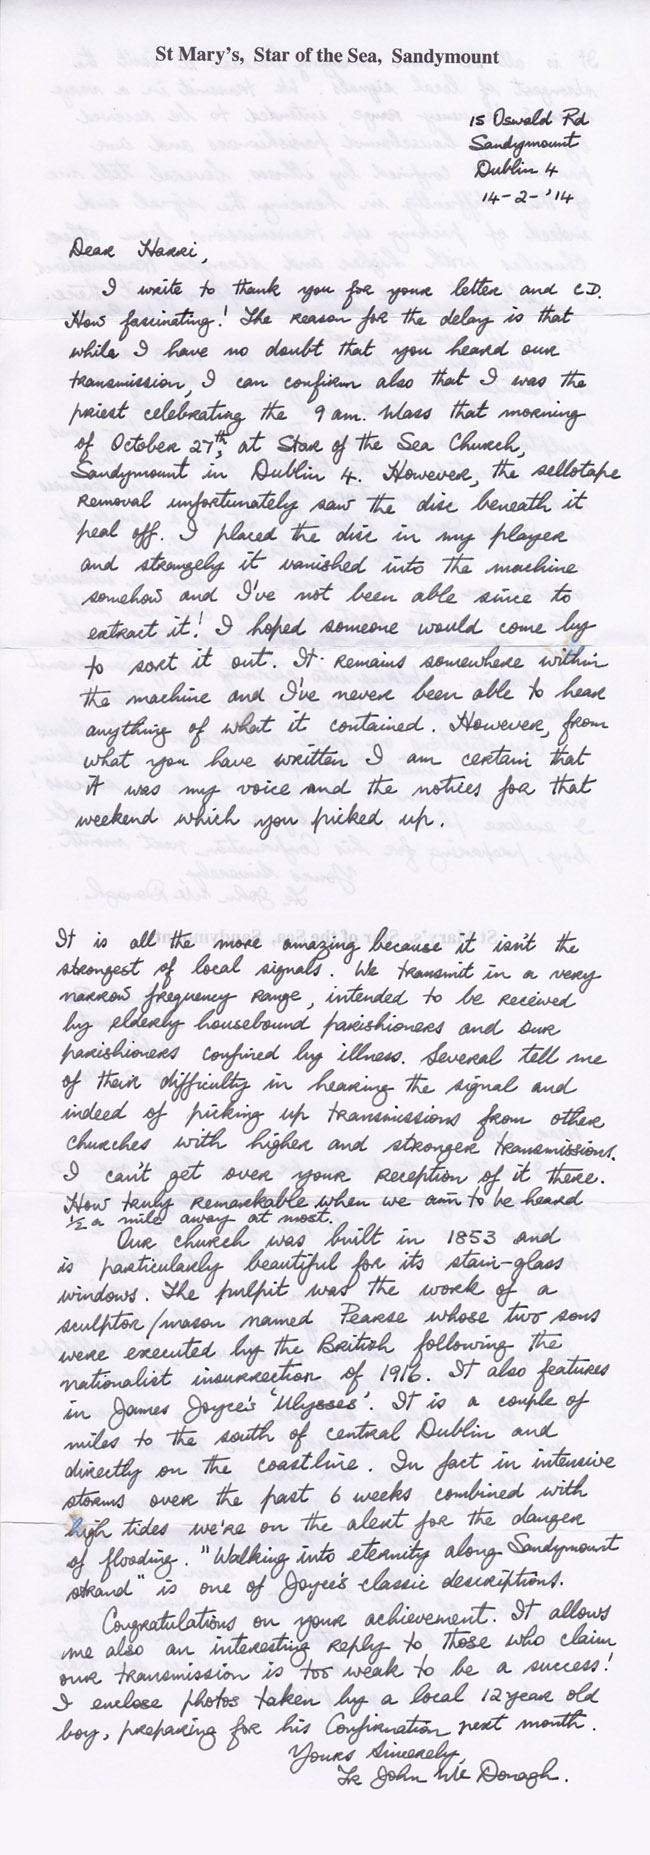 St Mary's, Star of the Sea, Sandymount
15 Oswald Rd
Sandymount
Dublin 4
14-2-'14
Dear Harri,
I write to thank you for your letter and C.D.
How fascinating! The reason for the delay is that
while I have no doubt that you heard our
transmission, I can confirm also that I was the
priest celebrating the 9 am. Mass that morning
of October 27th, at Star of the Sea Church,
Sandymount in Dublin 4. However, the sellotape
removal unfortunately saw the disc beneath it
peal off. I placed the disc in my player
and strangely it vanished into the machine
somehow and I've not been able since to
extract it! I hoped someone would come by
to sort it out. It remains somewhere within
the machine and I've never been able to hear
anything of what it contained. However, from
what you have written I am certain that
it was my voice and the notices for that
weekend which you picked up.
It is all the more amazing because it isn't the
strongest of local signals. We transmit in a very
narrow frequency range, intended to be received
by elderly housebound parishioners and our
parishioners confined by illness. Several tell me
of their difficulty in hearing the signal and
indeed of picking up transmissions from other
churches with higher and stronger transmissions.
I can't get over your reception of it there.
How truly remarkable when we aim to be heard
1/2 a mile away at most.
Our church was built in 1853 and
is particularly beautiful for its stain-glass
windows. The pulpit was the work of a
sculptor/mason named Pearse whose two sons
were executed by the British following the
nationalist insurrection of 1916. It also features
in James Joyce's 'Ulysses'. It is a couple of
miles to the south of central Dublin and
directly on the coastline. In fact in intensive
storms over the past 6 weeks combined with
high tides we're on the alert for the danger
of flooding. "Walking into eternity along Sandymount
strand" is one of Joyce's classic descriptions.
Congratulations on your achievement. It allows
me also an interesting reply to those who claim
our transmission is too weak to be a success!
I enclose photos taken by a local 12 year old
boy, preparing for his Confirmation next month.
Yours Sincerely,
Fr John Mc Donagh.